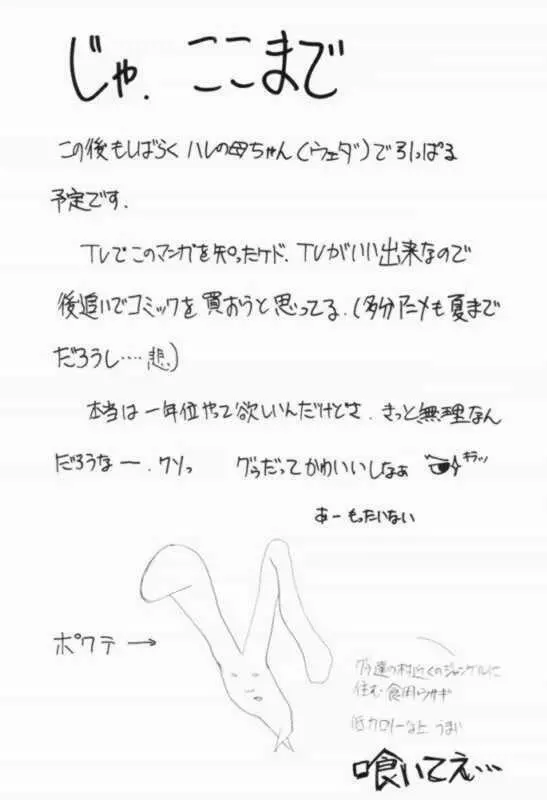 じゃ、ここまで
この後もしばらくハレの母ちゃん(ウェダ)で引っぱる
予定です.
TVでこのマンガを知ったケド、TVがいい出来なので
後追いでコミックを買おうと思ってる.(多分アニメも夏まで
だろうし‥‥悲)
本当は一年位やって欲しいんだけどさ、きっと無理なん
だろうなー、クソっ グゥだってかわいいしなぁ キラッ
あーもったいない
ポクテ→
グゥ達の村近くのジャングルに
住む食用ウサギ
低カロリーな上うまい
喰いてぇ…